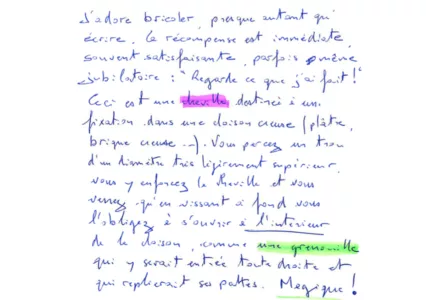 J'adore bricoler, presque autant qu'
écrire. La récompense est immédiate,
souvent satisfaisante, parfois même
jubilatoire : "Regarde ce que j'ai fait !"
Ceci est une cheville destinée à une
fixation dans une cloison creuse (plâtre,
brique creuse ...). Vous percez un trou
d'un diamètre très légèrement supérieur,
vous y enfoncez la cheville et vous
verrez qu'en vissant à fond vous
l'obligez à s'ouvrir à l'intérieur
de la cloison, comme une grenouille
qui y serait entrée toute droite et
qui replierait ses pattes. Magique !